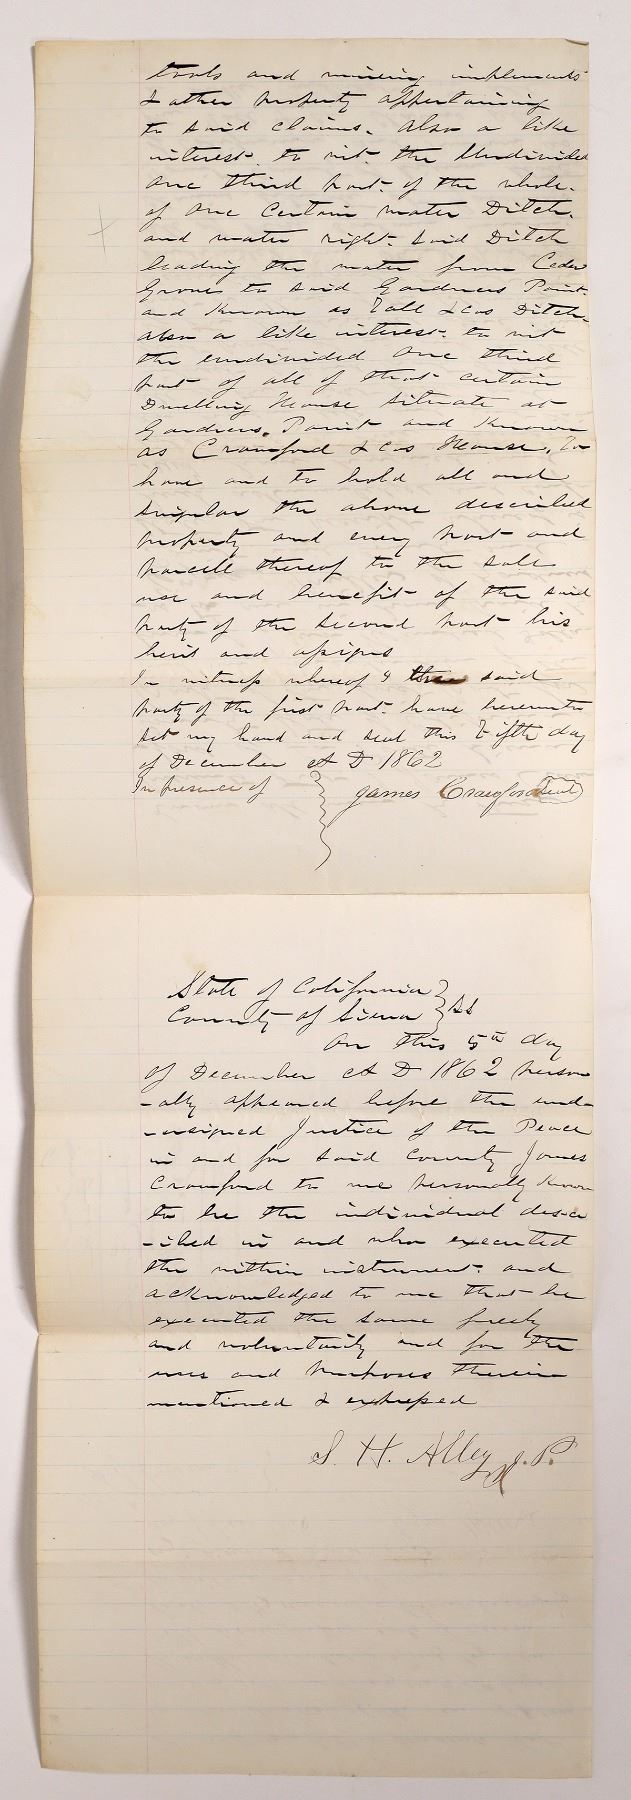 tools and mining implements
& other property appertaining
to said claims. Also a like
interest. to wit. the Undivided
one third part. of the whole.
of one certain water Ditch.
and water right. said Ditch
leading the water from Cedar
Grove to said Gardners Point.
and Known as & cos Ditch
also a like interest. to wit
the undivided one third
part of all of that certain
Dwelling House situate at
Gardners. Point and Known
as Crawford & cos House. To
have and to hold all and
singular the above described
property and every part and
parcell thereof to the sole
use and benefit of the said
party of the second part his
heirs and assigns
In witness whereof I the said
party of the first part. have hereunto
set my hand and seal this Fifth day
of December A D 1862
In presence of } James Crawford Seal
State of California }
County of Sierra } ss
On this 5th day
of December A D 1862 person
-ally appeared before the und-
-ersigned Justice of the Peace
in and for said County James
Crawford to me personally known
to be the individual descr
-ibed in and who executed
the within instrument. and
acknowledged to me that he
executed the same freely
and voluntarily and for the
uses and purposes therein
mentioned &
S. H. Alley J. P.